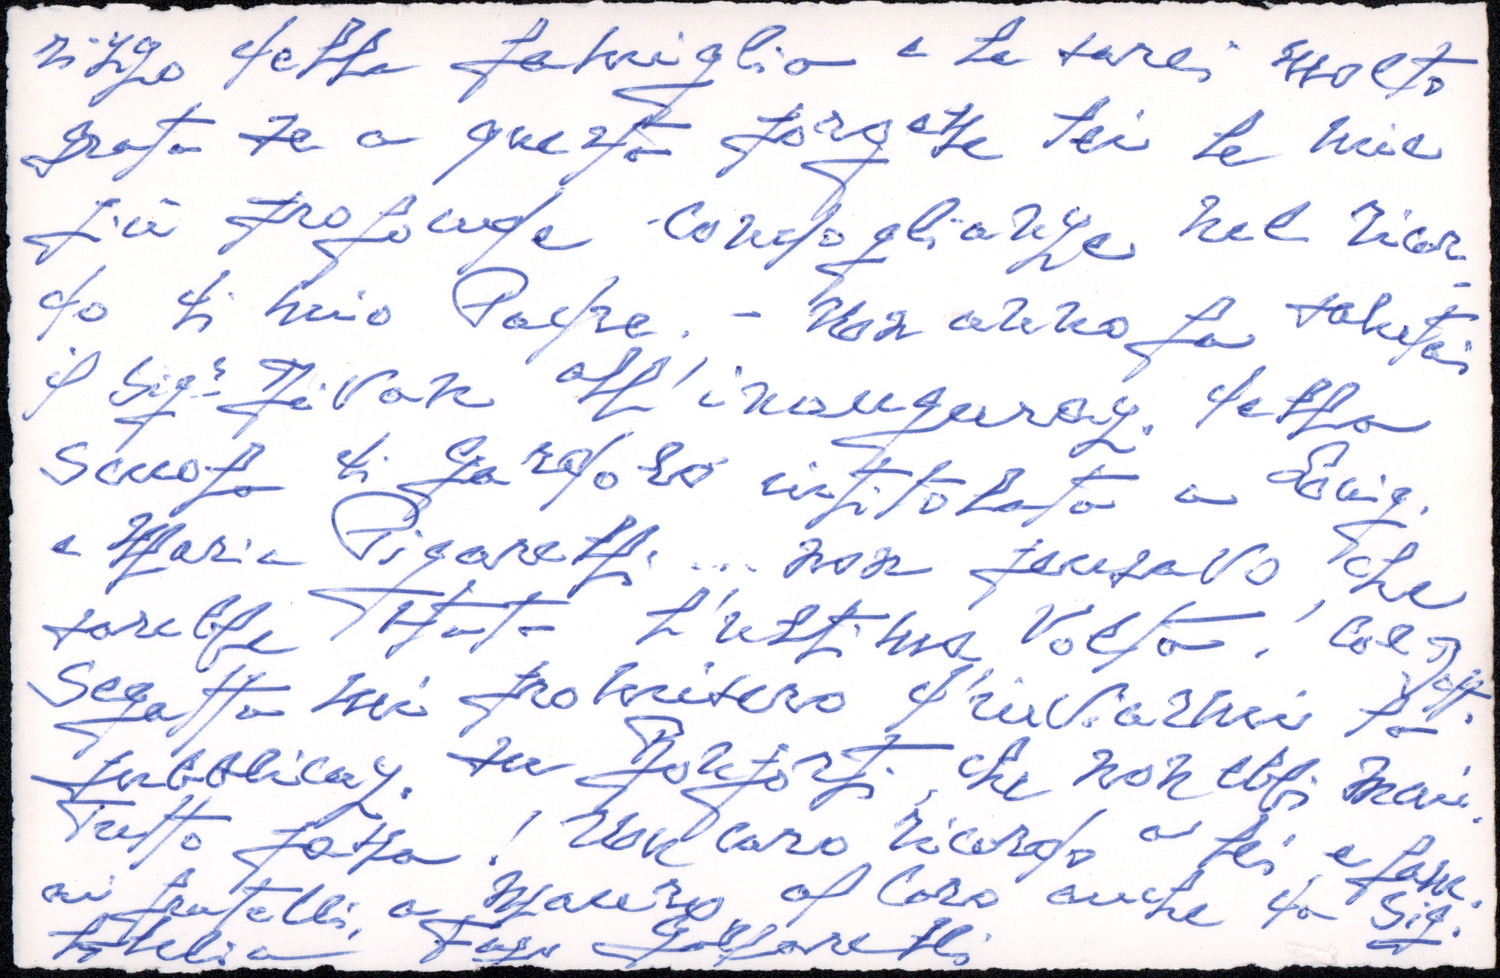 rizzo della famiglia e Le sarei molto
grata se a questa porgesse Lei le mie
più profonde condoglianze nel ricor-
do di mio Padre. - Un anno fa salutai
il Sig.r Pivan all'inauguraz. della
Scuola di Gardolo intitolata a Luig.
e Maria Pigarelli ... non pensavo che
sarebbe stata l'ultima volta! Col Dott.
Segatta mi promisero d'inviarmi la
pubblicaz. su Bonporti, che non ebbi mai.
Tutto passa! Un caro ricordo a Lei, e fam.
ai fratelli, a Mauro, al Coro anche da Sig.
Pigarelli